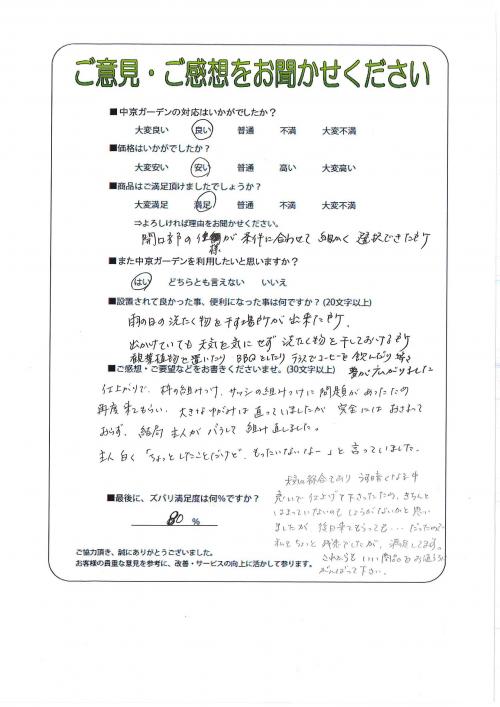 ご意見・ご感想をお聞かせください
■中京ガーデンの対応はいかがでしたか？
大変良い 良い 普通 不満 大変不満
■価格はいかがでしたか？
大変安い 安い 普通 高い 大変高い
■商品はご満足頂けましたでしょうか？
大変満足 満足 普通 不満 大変不満
⇒よろしければ理由をお聞かせください。
開口部の仕様が条件に合わせて細かく選択できた所
■また中京ガーデンを利用したいと思いますか？
はい どちらとも言えない いいえ
■設置されて良かった事、便利になった事は何ですか？(20文字以上)
雨の日の洗たく物を干す場所が出来た所。
出かけていても天気を気にせず洗たく物を干しておける所
観葉植物を置いたりBBQをしたりテラスでコーヒーを飲んだり
豊が広がりました
■ご感想・ご要望などをお書きくださいませ。(30文字以上)
仕上がりで、枠の組みつけ、サッシの組みつけに問題があったため
再度来てもらい、大きなゆがみは直っていましたが完全にはおさまって
おらず、結局主人がバラして組み直しました。
主人曰く「ちょっとしたことだけど、もったいないなー」と言っていました。
天気の都合であり うす暗くなる中
急いで仕上げて下さったため、きちんと
はまっていないのもしょうがないかと思い
ましたが 後日来てもらっても・・・だったので
私もちょっと残念でしたが、満足してます。
これからもいい商品を
がんばって下さい。
■最後に、ズバリ満足度は何%ですか？
80 %
ご協力頂き、誠にありがとうございました。
お客様の貴重な意見を参考に、改善・サービスの向上に活かして参ります。